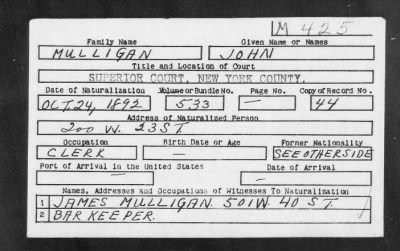 M 425
Family Name Given Name or Names
MULLIGAN JOHN
Title and Location of Court
SUPERIOR COURT, NEW YORK COUNTY.
Date of Naturalization Volume or Bundle No. Page No. Copy of Record No.
OCT. 24, 1892 533 — 44
Address of Naturalized Person
200 W. 23 ST
Occupation Birth Date or Age Former Nationality
CLERK — SEE OTHER SIDE
Port of Arrival in the United States Date of Arrival
— —
Names, Addresses and Occupations of Witnesses To Naturalization
1 JAMES MULLIGAN. 501 W. 40 ST.
2 BAR KEEPER.